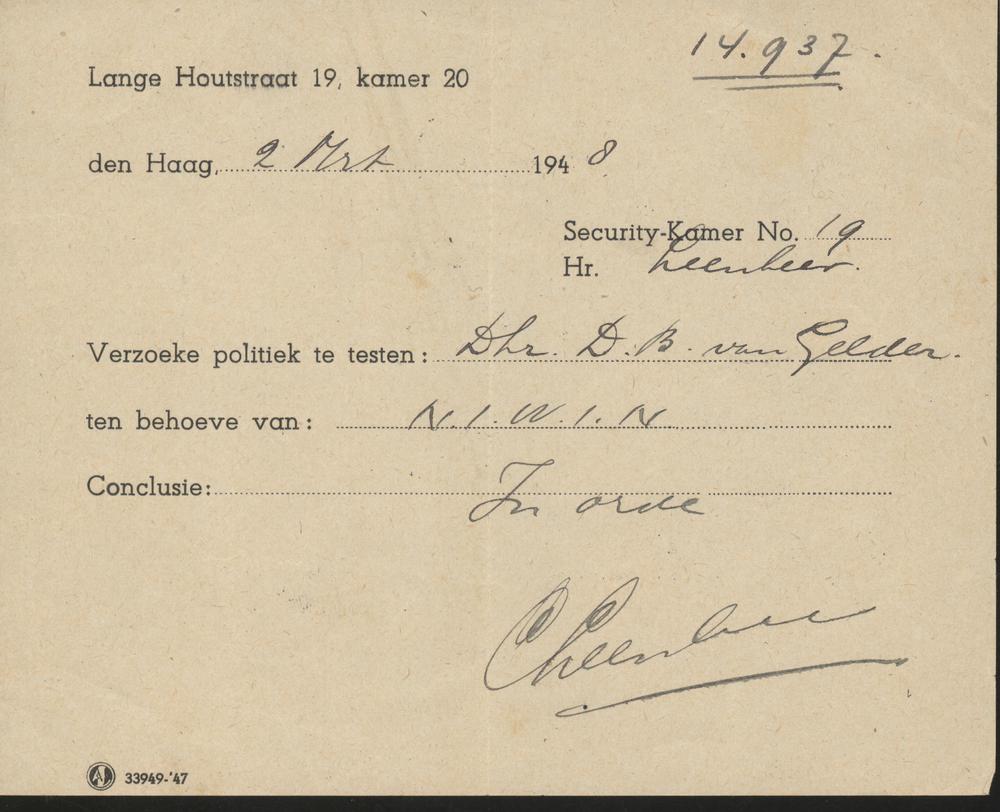 14.937.
Lange Houtstraat 19, kamer 20
den Haag, 2 Mrt 1948
Security-Kamer No. 19
Hr. Leenheer.
Verzoeke politiek te testen: Dhr. D.B. van Gelder.
ten behoeve van: N.I.W.I.N.
Conclusie: In orde
CLeenheer
33949-'47